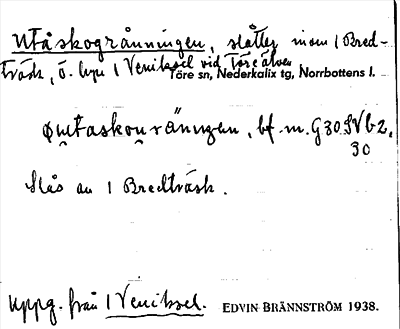 Utåskogrånningen, slåtter inom 1 Bred-
träsk, ö. byn 1 Veniksel vid Töre älven
Töre sn, Nederkalix tg, Norrbottens l.
bf. m. G 30
30
Slås av 1 Bredträsk.
Uppg. från 1 Veniksel. EDVIN BRÄNNSTRÖM 1938.